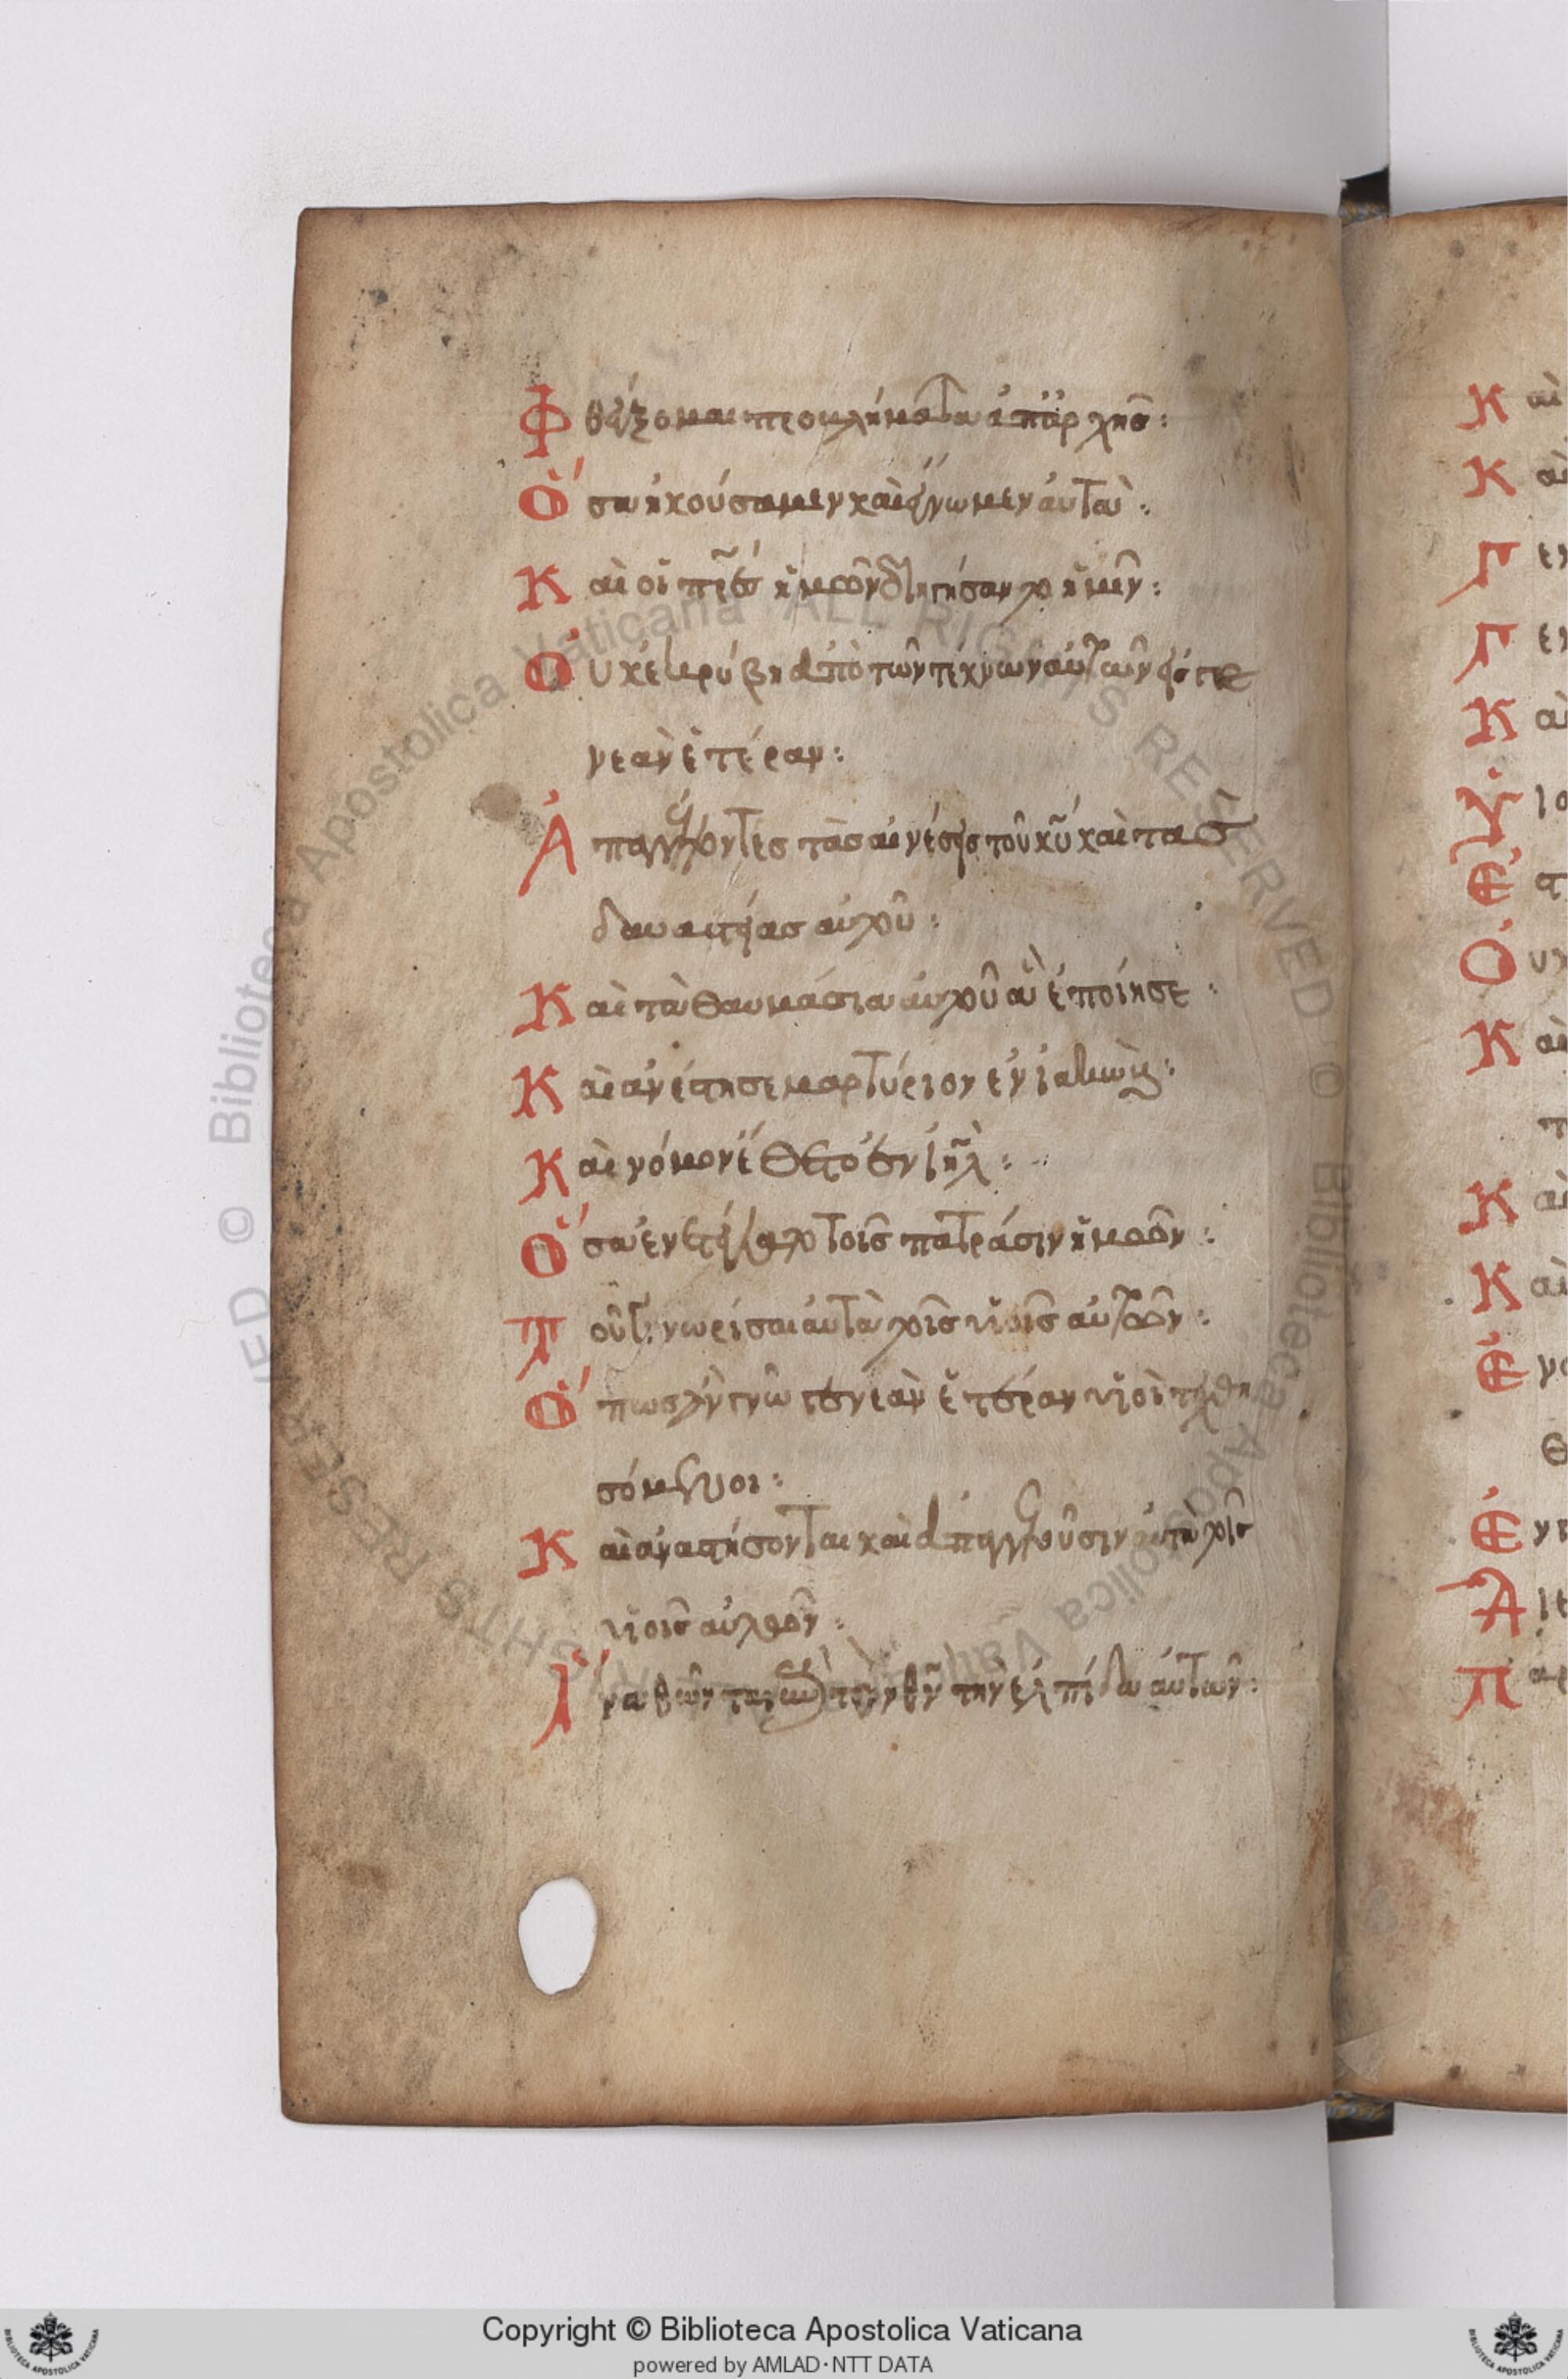 Φθέγξομαι προβλήματα ἀπ' ἀρχῆς:
Ὅσα ἠκούσαμεν καὶ ἔγνωμεν αὐτὰ:
Καὶ οἱ πρ̅ε̅ς ἡμῶν διηγήσαντο ἡμῖν:
Οὐκ ἐκρύβη ἀπὸ τῶν τέκνων αὐτῶν εἰς γε
νεὰν ἑτέραν:
Ἀπαγγέλλοντες τὰς αἰνέσεις τοῦ κ̅υ̅ καὶ τὰς
δυναστείας αὐτοῦ:
Καὶ τὰ θαυμάσια αὐτοῦ ἃ ἐποίησε:
Καὶ ἀνέστησε μαρτύριον ἐν ἰακὼβ:
Καὶ νόμον ἔθετο ἐν ι̅η̅λ̅:
Ὅσα ἐνετείλατο τοῖς πατράσιν ἡμῶν:
Τοῦ γνωρίσαι αὐτὰ τοῖς υἱοῖς αὐτῶν:
Ὅπως ἂν γνῷ γενεὰν ἑτέραν υἱοὶ τεχθη
σόμενοι:
Καὶ ἀναστήσονται καὶ ἀπαγγελοῦσιν αὐτὰ τοῖς
υἱοῖς αὐτῶν:
Ἵνα θῶνται ἐπὶ τὸν θ̅ν̅ τὴν ἐλπίδα αὐτῶν:
Κ αὶ
Κ αὶ
Γ εν
Γ εν
Κ αὶ
Υ ἱο
Ἐ
Ὀ υκ
Κ αὶ
Κ αὶ
Κ αὶ
Ἐ
Ἐ ντ
Copyright © Biblioteca Apostolica Vaticana
powered by AMLAD·NTT DATA